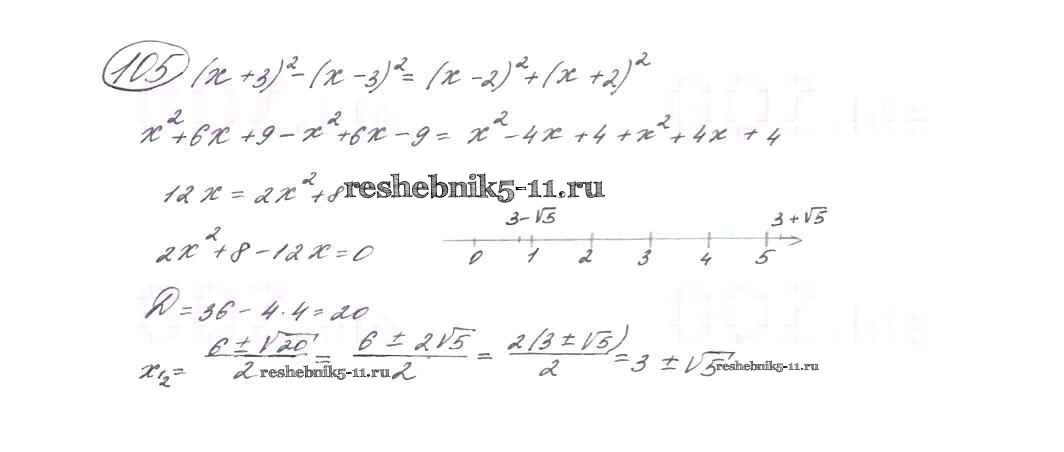 105 (x + 3)² - (x - 3)² = (x - 2)² + (x + 2)²
x² + 6x + 9 - x² + 6x - 9 = x² - 4x + 4 + x² + 4x + 4
12x = 2x² + 8 reshebnik5-11.ru
3-√5 3+√5
2x² + 8 - 12x = 0
0 1 2 3 4 5
D = 36 - 4·4 = 20
x₁,₂ = (6 ± √20)/2 = (6 ± 2√5)/2 = 2(3 ± √5)/2 = 3 ± √5
reshebnik5-11.ru reshebnik5-11.ru